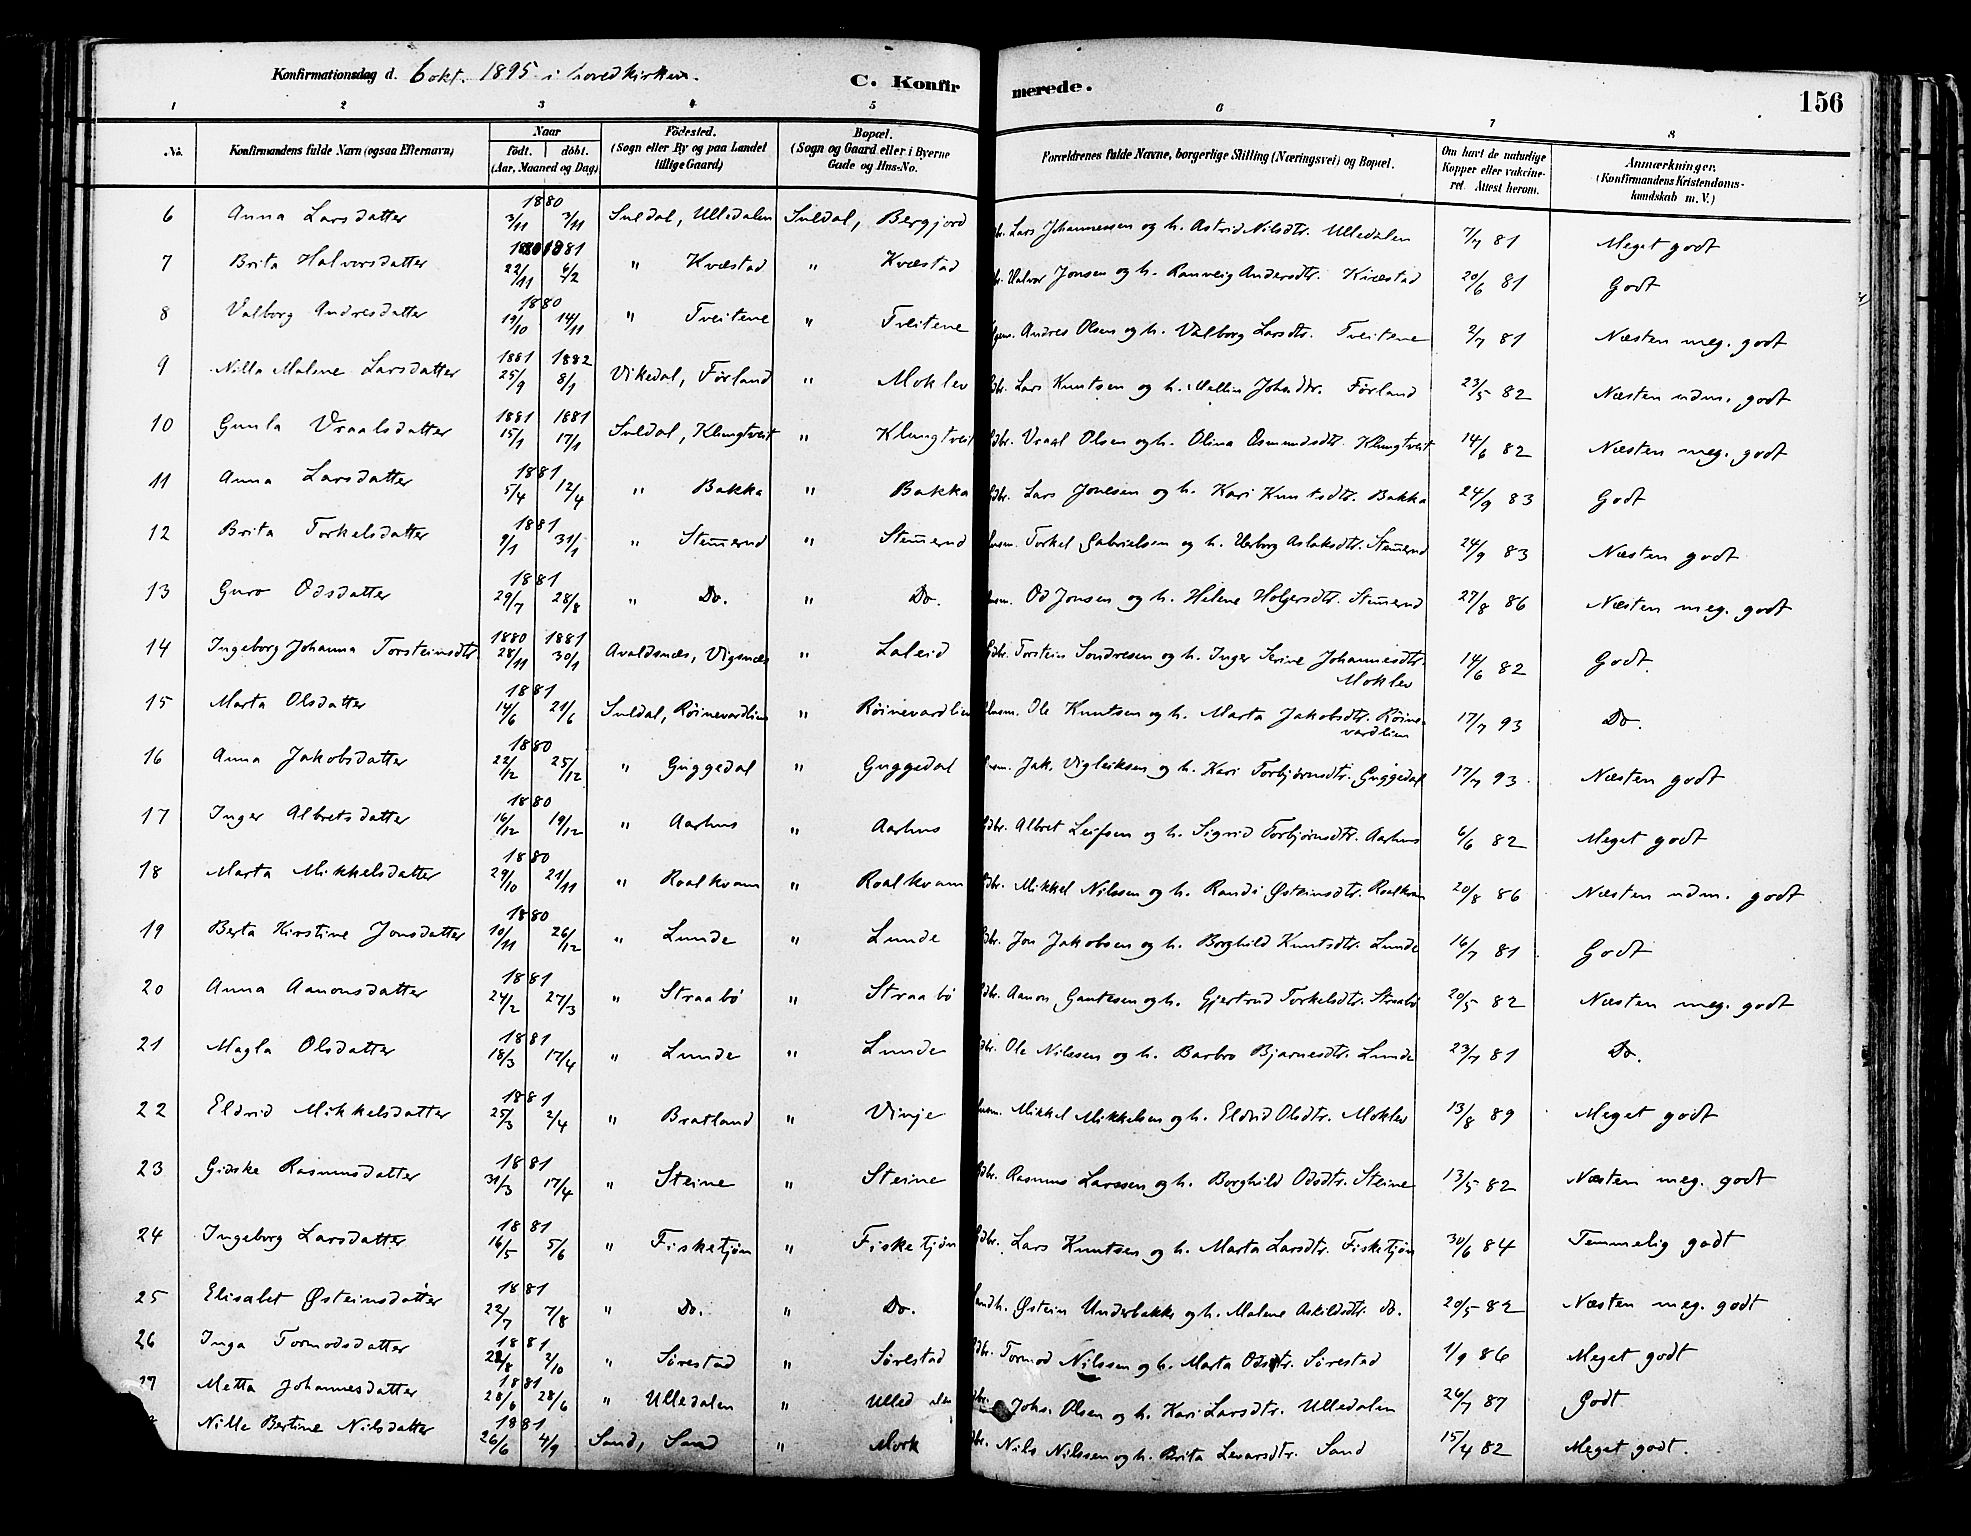 Konfirmationsdag d. 6 okt. 1895 i hovedkirken.
C. Konfirmerede.
156
1 2 3 4 5 6 7 8
No. Konfirmandens fulde Navn (ogsaa Efternavn) Naar födt. döbt. (Aar, Maaned og Dag) Födested. (Sogn eller By og paa Landet tillige Gaard) Bopæl. (Sogn og Gaard eller i Byerne Gade og Hus-No. Forældrenes fulde Navne, borgerlige Stilling (Næringsvei) og Bopæl. Om havt de naturlige Kopper eller vakcineret. Attest herom. Anmærkninger. (Konfirmandens Kristendomskundskab m. V.)
6 Anna Larsdatter 1880 3/11 3/11 Suldal, Ulledalen Suldal, Bergjord Lars Johannessen og h. Astrid Nilsdtr. Ulledalen 7/7 81 Meget godt
7 Brita Halvorsdatter 1880 1881 22/11 6/2 " Kvæstad " Kvæstad Halvor Jonsen og h. Ranveig Andersdtr. Kvæstad 20/6 81 Godt
8 Valborg Andresdatter 1880 19/10 14/11 " Tveitene " Tveitene Andres Olsen og h. Valborg Larsdtr. Tveitene 2/7 81 Næsten meg. godt
9 Nilla Malene Larsdatter 1881 1882 25/9 8/1 Vikedal, Førland " Moklev Gbr. Lars Knutsen og h. Mallin Johsdtr. Førland 23/5 82 Næsten udm. godt
10 Gunla Vraalsdatter 1881 1881 15/1 17/1 Suldal, Klungtveit " Klungtveit Gbr. Vraal Olsen og h. Olina Osmundsdtr. Klungtveit 14/6 82 Næsten meg. godt
11 Anna Larsdatter 1881 5/4 12/4 " Bakka " Bakka Gbr. Lars Jonesen og h. Kari Knutsdtr. Bakka 24/9 83 Godt
12 Brita Torkelsdatter 1881 9/1 31/1 " Stem̅erud " Stem̅erud Husm. Torkel Gabrielsen og h. Verborg Aslaksdtr. Stem̅erud 24/9 83 Næsten godt
13 Guro Odsdatter 1881 29/7 28/8 " Do. " Do. Husm. Od Jonsen og h. Helene Holgersdtr. Stem̅erud 27/8 86 Næsten meg. godt
14 Ingeborg Johanna Torsteinsdtr. 1880 1881 28/11 30/1 Avaldsnæs, Vigsnæs " Laleid Gbr. Torstein Sondresen og h. Inger Serine Johannesdtr. Moklev 14/6 82 Godt.
15 Marta Olsdatter 1881 14/6 21/6 Suldal, Røinevardlien " Røinevardlien Husm. Ole Knutsen og h. Marta Jakobsdtr. Røinevardlien 17/7 93 Do.
16 Anna Jakobsdatter 1880 22/12 25/12 " Guggedal " Guggedal Husm. Jak. Vigleiksen og h. Kari Torbjørnsdtr. Guggedal 17/7 93. Næsten godt
17 Inger Albretsdatter 1880 16/12 19/12 " Aarhus " Aarhus Gbr. Albret Leifsen og h. Sigrid Torbjørnsdtr. Aarhus 6/6 82 Meget godt
18 Marta Mikkelsdatter 1880 29/10 21/11 " Roalkvam " Roalkvam Gbr. Mikkel Nilssen og h. Randi Østeinsdtr. Roalkvam 20/8 86 Næsten udm. godt
19 Berta Kirstine Jonsdatter 1880 10/11 26/12 " Lunde " Lunde Gbr. Jon Jakobsen og h. Borghild Knutsdtr. Lunde 16/7 81 Godt
20 Anna Aanonsdatter 1881 24/2 27/3 " Straabø " Straabø Gbr. Aanon Gautesen og h. Gjertrud Torkelsdtr. Straabø 20/5 82 Næsten meg. godt
21 Magla Olsdatter 1881 18/3 17/4 " Lunde " Lunde Gbr. Ole Nilssen og h. Barbro Bjarnesdtr. Lunde 23/7 81 Do.
22 Eldrid Mikkelsdatter 1881 25/3 2/4 " Bratland " Vinje Husm. Mikkel Mikkelsen og h. Eldrid Olsdtr. Moklev 13/8 89 Meget godt
23 Gidske Rasmusdatter 1881 31/3 17/4 " Steine " Steine Gbr. Rasmus Larssen og h. Borghild Odsdtr. Steine 13/5 82 Næsten meg. godt
24 Ingeborg Larsdatter 1881 16/5 5/6 " Fisketjøn " Fisketjøn Gbr. Lars Knutsen og h. Marta Larsdtr. Fisketjøn 30/6 84 Temmelig godt
25 Elisabet Østeinsdatter 1881 22/7 7/8 " Do. " Do. Landh. Østein Underbakke og h. Malene Askildsdtr. do. 20/5 82 Næsten meg. godt
26 Inga Tormodsdatter 1881 22/8 2/10 " Sørestad " Sørestad Gbr. Tormod Nilssen og h. Marta Odsdtr. Sørestad 1/9 86 Meget godt
27 Metta Johannesdatter 1881 28/6 28/6 " Ulledalen " Ulledalen Gbr. Johs. Olsen og h. Kari Larsdtr. Ulledalen 26/7 87 Godt
Nille Bertine Nilsdatter 1881 26/6 4/9 Sand, Sand " Mork Gbr. Nils Nilssen og h. Brita Levarsdtr. Sand 15/4 82 Meget godt.